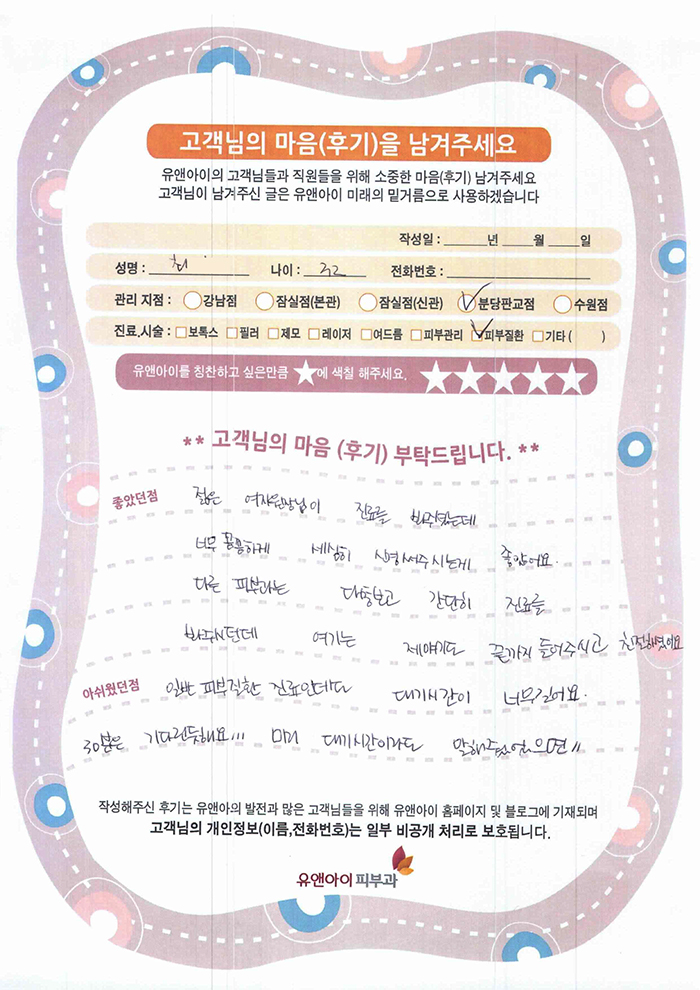 고객님의 마음(후기)을 남겨주세요
유앤아이의 고객님들과 직원들을 위해 소중한 마음(후기) 남겨주세요
고객님이 남겨주신 글은 유앤아이 미래의 밑거름으로 사용하겠습니다
작성일 : 년 월 일
성명 : 최 나이 : 32 전화번호 :
관리 지점 : 강남점 잠실점(본관) 잠실점(신관) 분당판교점 수원점
진료.시술 : 보톡스 필러 제모 레이저 여드름 피부관리 피부질환 기타 ( )
유앤아이를 칭찬하고 싶은만큼 ★에 색칠 해주세요. ★★★★★
** 고객님의 마음 (후기) 부탁드립니다. **
좋았던점 젊은 여자원장님이 진료를 봐주셨는데
너무 꼼꼼하게 세심히 신경써주시는게 좋았어요.
다른 피부과는 대충보고 간단히 진료를
봐주시던데 여기는 제얘기도 끝까지 들어주시고 친절하셨어요
아쉬웠던점 일반 피부질환 진료인데도 대기시간이 너무길어요.
30분은 기다린듯해요!!! 미리 대기시간이라도 말해주셨으면!!
작성해주신 후기는 유앤아의 발전과 많은 고객님들을 위해 유앤아이 홈페이지 및 블로그에 기재되며
고객님의 개인정보(이름,전화번호)는 일부 비공개 처리로 보호됩니다.
유앤아이피부과